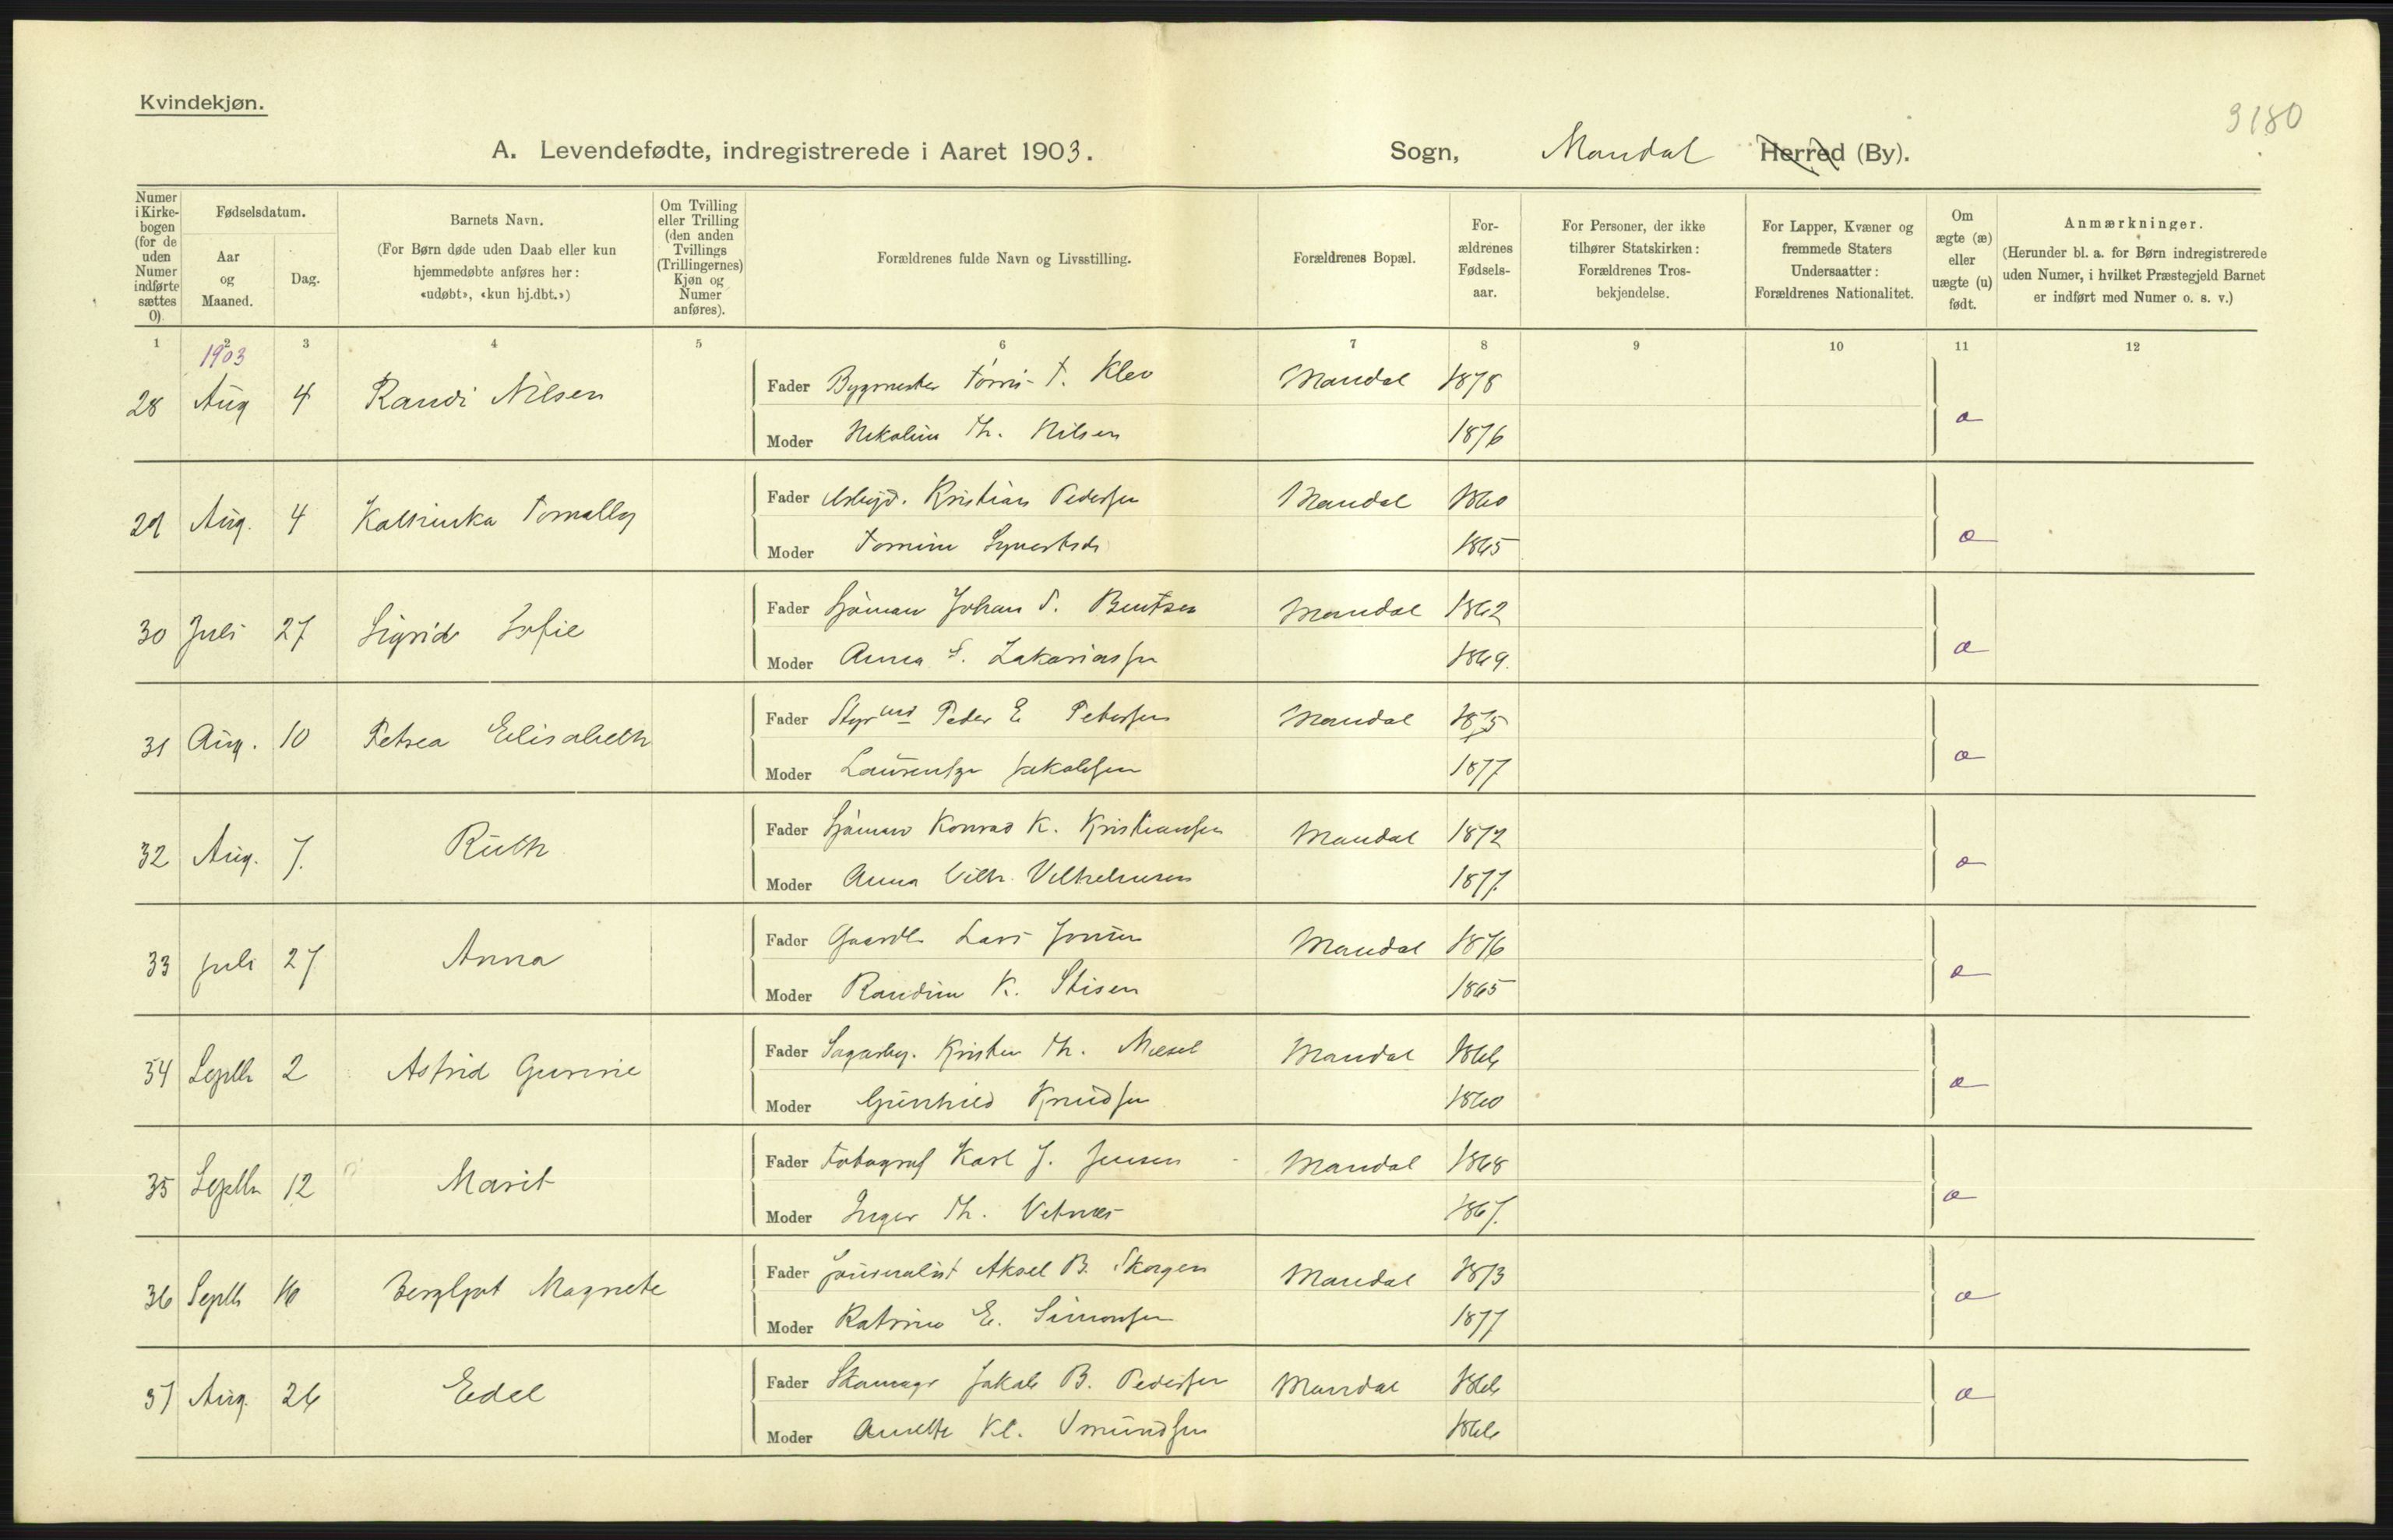 Kvindekjøn.
3180
A. Levendefødte, indregistrerede i Aaret 1903. Sogn, Mandal Herred (By).
Numer i Kirkebogen (for de uden Numer indførte sættes 0).
Fødselsdatum.
Aar og Maaned.
Dag.
Barnets Navn.
(For Børn døde uden Daab eller kun hjemmedøbte anføres her: «udøbt», «kun hj.dbt.»)
Om Tvilling eller Trilling (den anden Tvillings (Trillingernes) Kjøn og Numer anføres).
Forældrenes fulde Navn og Livsstilling.
Forældrenes Bopæl.
Forældrenes Fødselsaar.
For Personer, der ikke tilhører Statskirken: Forældrenes Trosbekjendelse.
For Lapper, Kvæner og fremmede Staters Undersaatter: Forældrenes Nationalitet.
Om ægte (æ) eller uægte (u) født.
Anmærkninger.
(Herunder bl. a. for Børn indregistrerede uden Numer, i hvilket Præstegjeld Barnet er indført med Numer o. s. v.)
1 2 3 4 5 6 7 8 9 10 11 12
1903
28 Aug 4 Randi Nilsen Fader T. Klev Mandal 1878 æ
Moder Th. Nilsen 1876
29 Aug. 4 Kathinka Fader Arbejd. Kristian Pedersen Mandal 1860 æ
Moder Tomine 1865
30 Juli 27 Sigrid Sofie Fader Sjöman Johan S. Bentsen Mandal 1862 æ
Moder Anna S. Zakariassen 1869.
31 Aug. 10 Petrea Elisabeth Fader Styrmd Peder E Petersen Mandal 1875 æ
Moder Jakobsen 1877
32 Aug. 7. Ruth Fader Sjöman Konrad K. Kristiansen Mandal 1872 æ
Moder Anna Vilh. Vilhelmsen 1877.
33 Juli 27 Anna Fader Lars Mandal 1876 æ
Moder Randine K. Stisen 1865
34 Septb 2 Astrid Gurine Fader Sagarbej. Kristen Th. Mandal 1866 æ
Moder Gunhild Knudsen 1860
35 Septbr 12 Marit Fader Fotograf Karl J. Jensen Mandal 1868 æ
Moder Inger Th. Vetnes 1867.
36 Septb 16 Bergljot Magnete Fader Journalist Aksel B. Skogen Mandal 1873 æ
Moder Katrine E. Simonsen 1877
37 Aug. 26 Edel Fader Skomagr Jakob B. Pedersen Mandal 1866 æ
Moder Anette Kl. 1866